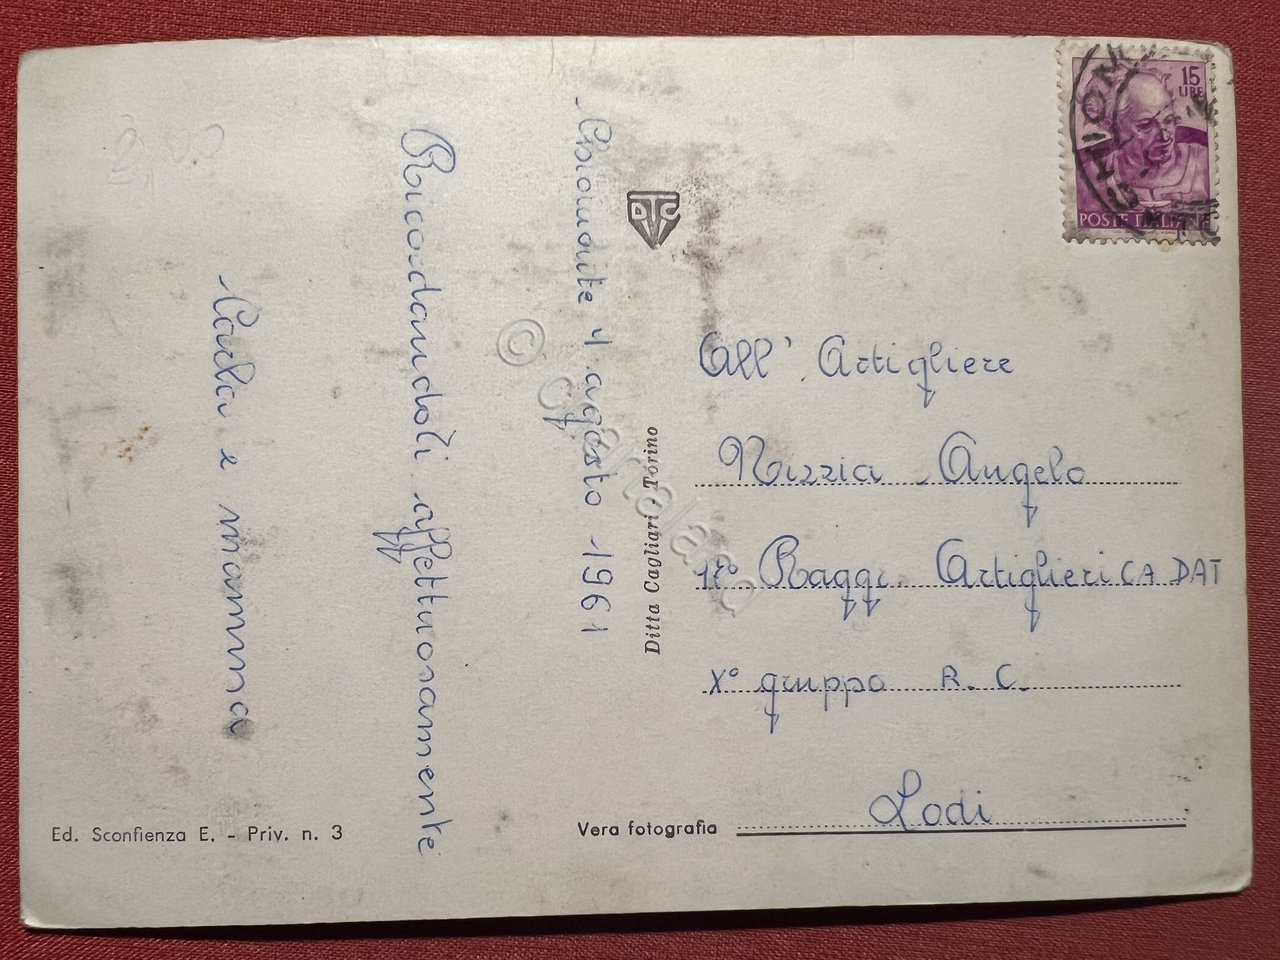 Chiomonte 4 agosto 1961
Ricordandoti affettuosamente
Carla e mamma
DTC
Ditta Cagliari - Torino
15
LIRE
POSTE ITALIANE
All' Artigliere
Nizzia Angelo
1° Ragg. Artiglieri CA DAT
X° gruppo R. C.
Lodi
Vera fotografia
Ed. Sconfienza E. - Priv. n. 3
© Cartalano